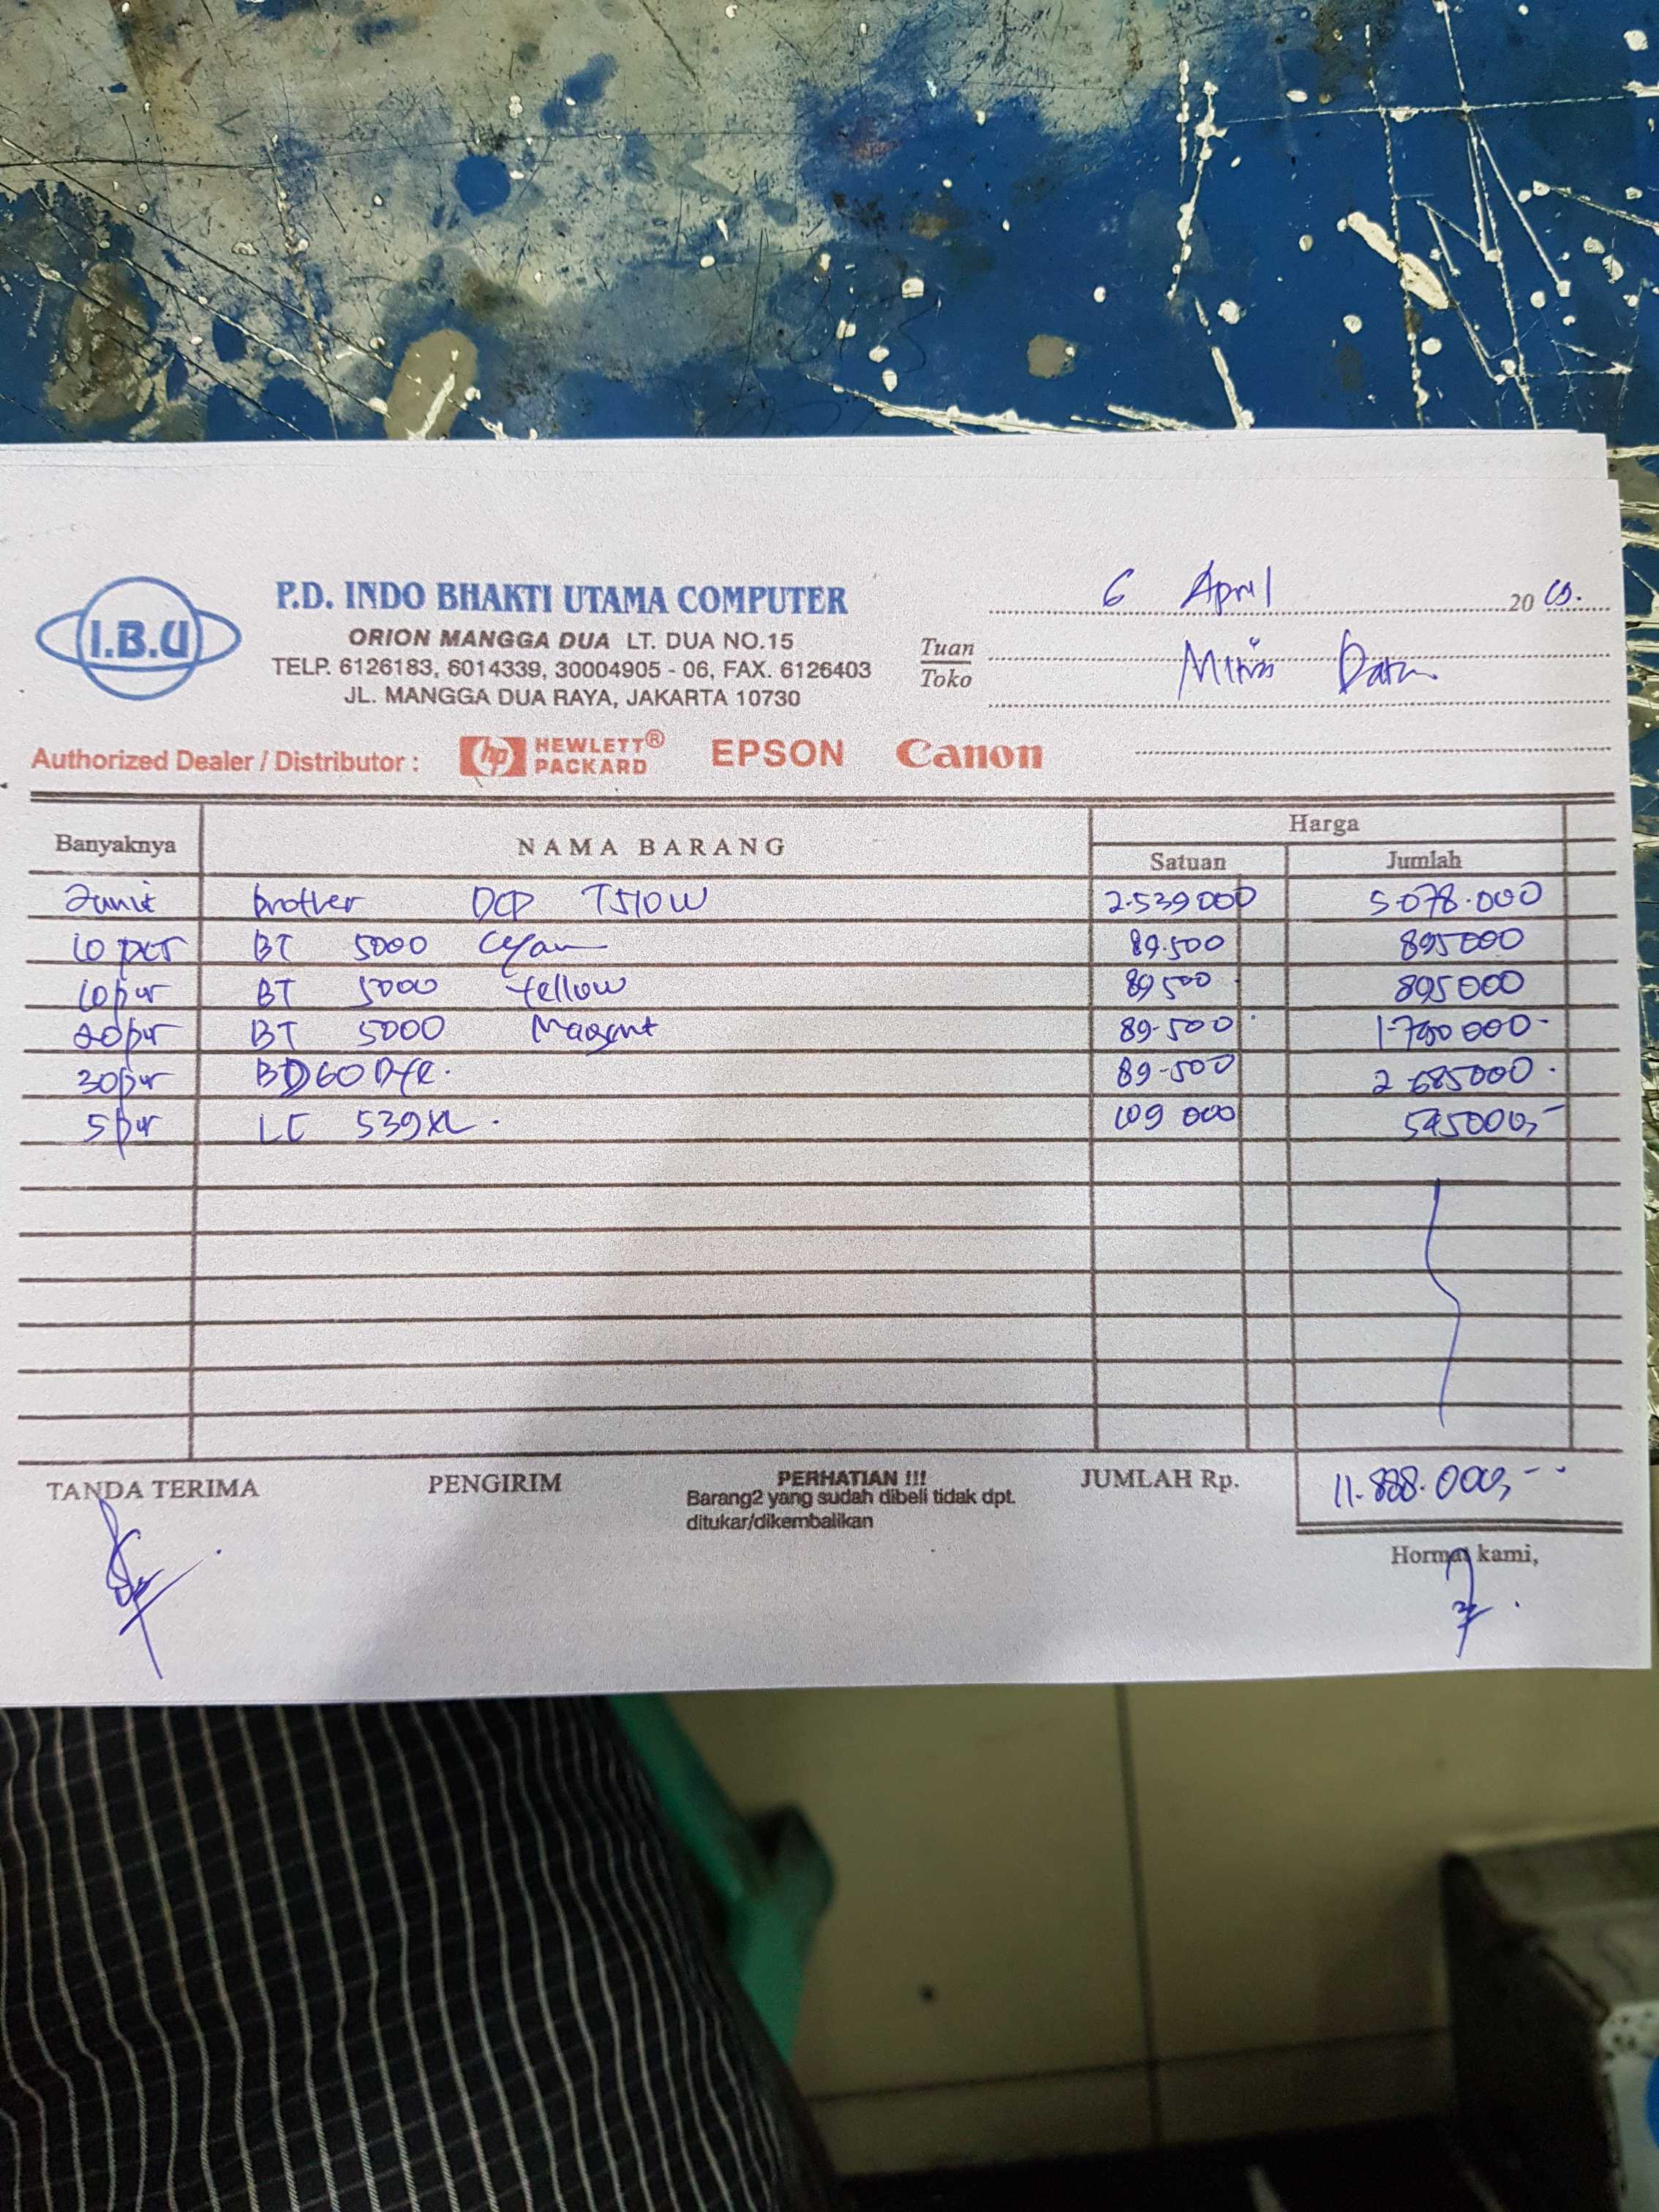 I.B.U
P.D. INDO BHAKTI UTAMA COMPUTER
ORION MANGGA DUA LT. DUA NO.15
TELP. 6126183, 6014339, 30004905 - 06, FAX. 6126403
JL. MANGGA DUA RAYA, JAKARTA 10730
6 April 20
Tuan
Toko
Authorized Dealer / Distributor : hp HEWLETT® PACKARD EPSON Canon
Banyaknya NAMA BARANG Harga
Satuan Jumlah
2unit brother DCP T510W 2.539000 5.078.000
10 BT 5000 Cyan 89.500 895000
10 BT 5000 Yellow 89500 895000
20 BT 5000 89-500 1-790 000-
30 BD60 89-500 2-685000.
5 LC 539XL. 109 000 545000,-
TANDA TERIMA PENGIRIM PERHATIAN !!! JUMLAH Rp. 11.888.000,-
Barang2 yang sudah dibeli tidak dpt.
ditukar/dikembalikan
Hormat kami,